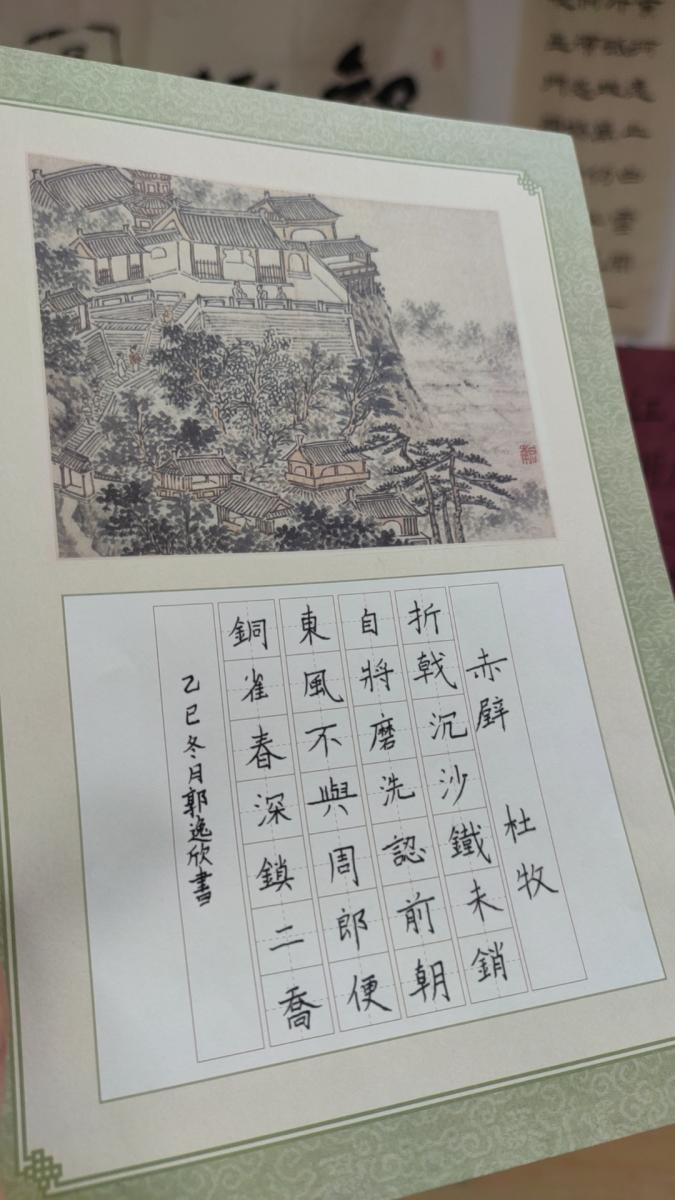 赤壁 杜牧
折戟沉沙鐵未銷
自將磨洗認前朝
東風不與周郎便
銅雀春深鎖二喬
乙巳冬月郭逸欣書